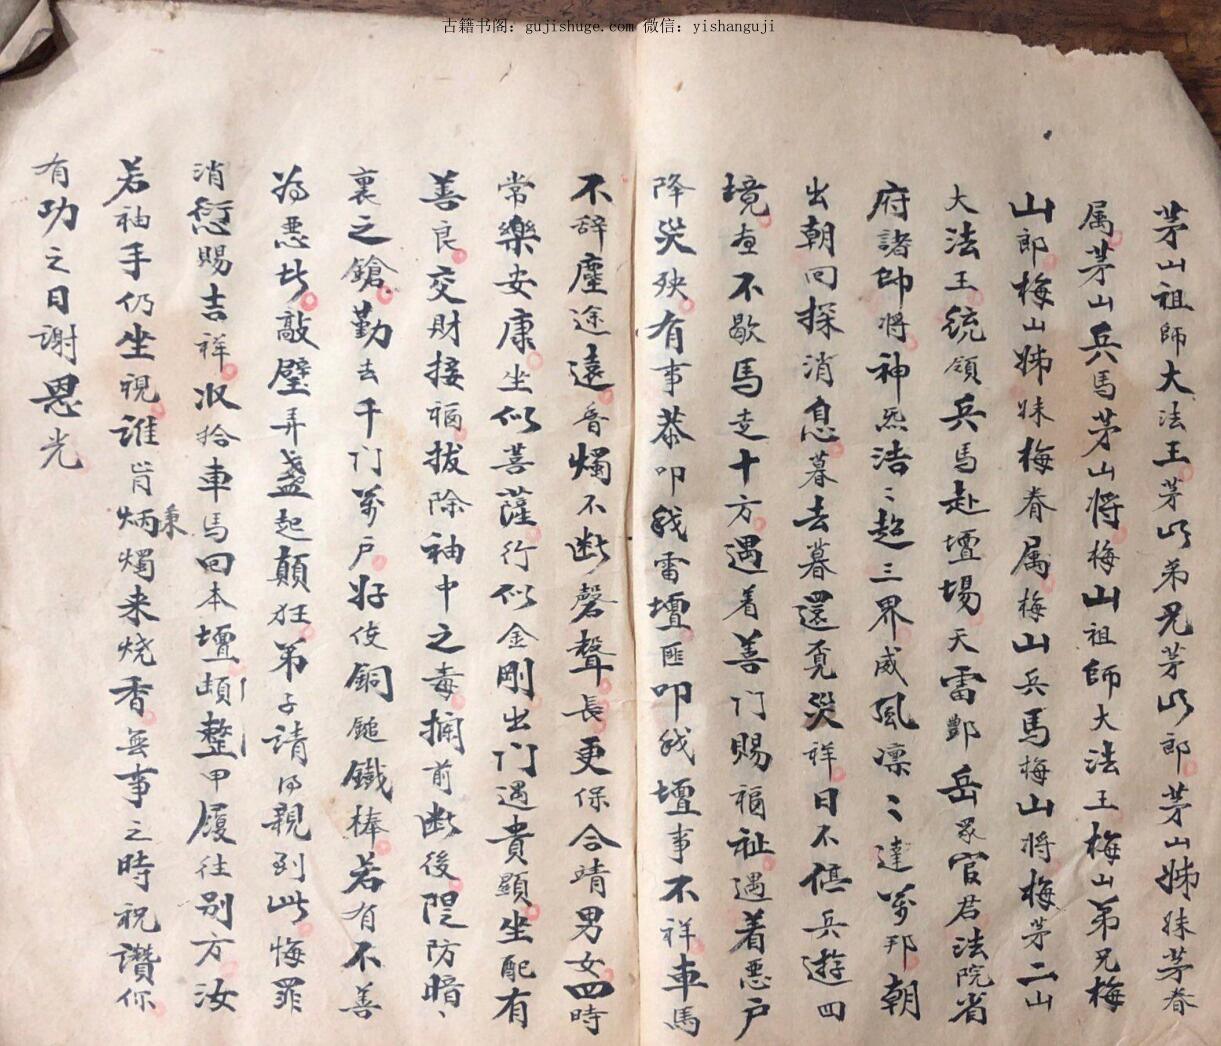 古籍书阁：gujishuge.com 微信：yishanguji
茅山祖師大法王茅山弟兄茅山郎茅山姊妹茅眷
属茅山兵馬茅山將梅山祖師大法王梅山弟兄梅
山郎梅山姊妹梅眷属梅山兵馬梅山將梅茅二山
大法王統領兵馬赴壇場天雷酆岳眾官君法院省
府諸帅將神炁浩〻超三界威風凛〻達萬邦朝
出朝回探消息暮去暮還覓災祥日不俱兵遊四
境夜不歇馬走十方遇着善门賜福祉遇着惡户
降災殃有事恭叩我雷壇匪叩我壇事不祥車馬
不辞塵途遠香燭不断磬聲長更保合靖男女四時
常樂安康坐似菩薩行似金剛出门遇貴顯坐配有
善良交財接福拔除袖中之毒掤前断後隄防暗、
裏之鎗勤去千门萬户好使銅鎚鐵棒若有不善
为惡者敲壁弄盏起顛狂弟子請你親到此悔罪
消愆賜吉祥收拾車馬回本壇頓整甲履往别方汝
若袖手仍坐視誰肯炳秉燭来烧香無事之時祝讚你
有功之日謝恩光